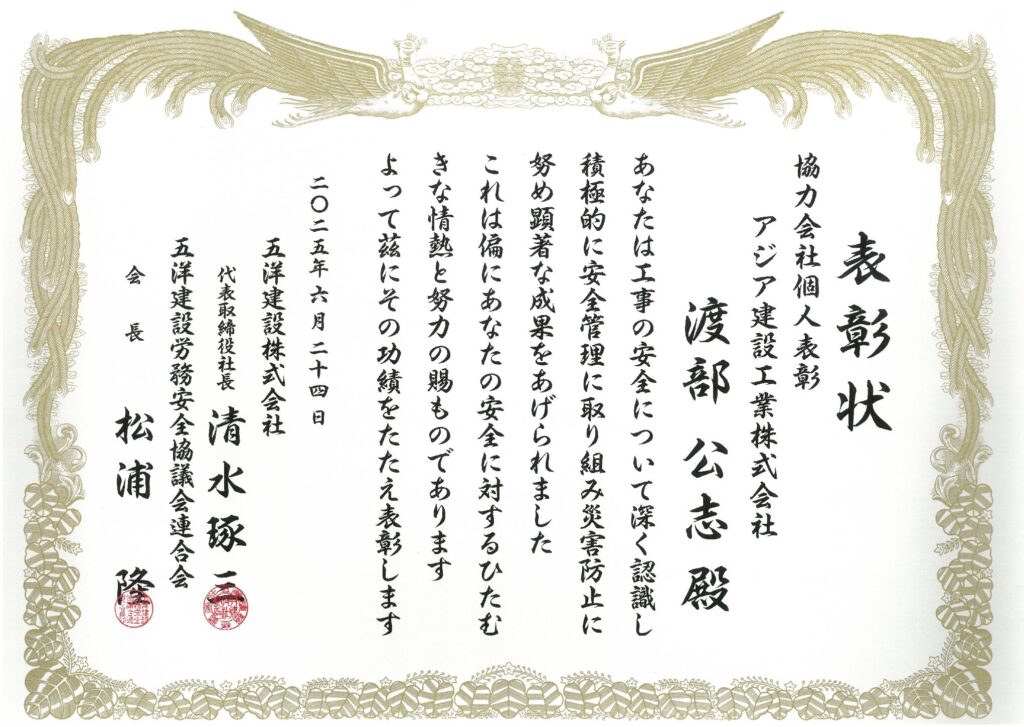 表彰状
協力会社個人表彰
アジア建設工業株式会社
渡部 公志 殿
あなたは工事の安全について深く認識し
積極的に安全管理に取り組み災害防止に
努め顕著な成果をあげられました
これは偏にあなたの安全に対するひたむ
きな情熱と努力の賜ものであります
よって茲にその功績をたたえ表彰します
二〇二五年六月二十四日
五洋建設株式会社
代表取締役社長 清水琢三
五洋建設労務安全協議会連合会
会長 松浦 隆